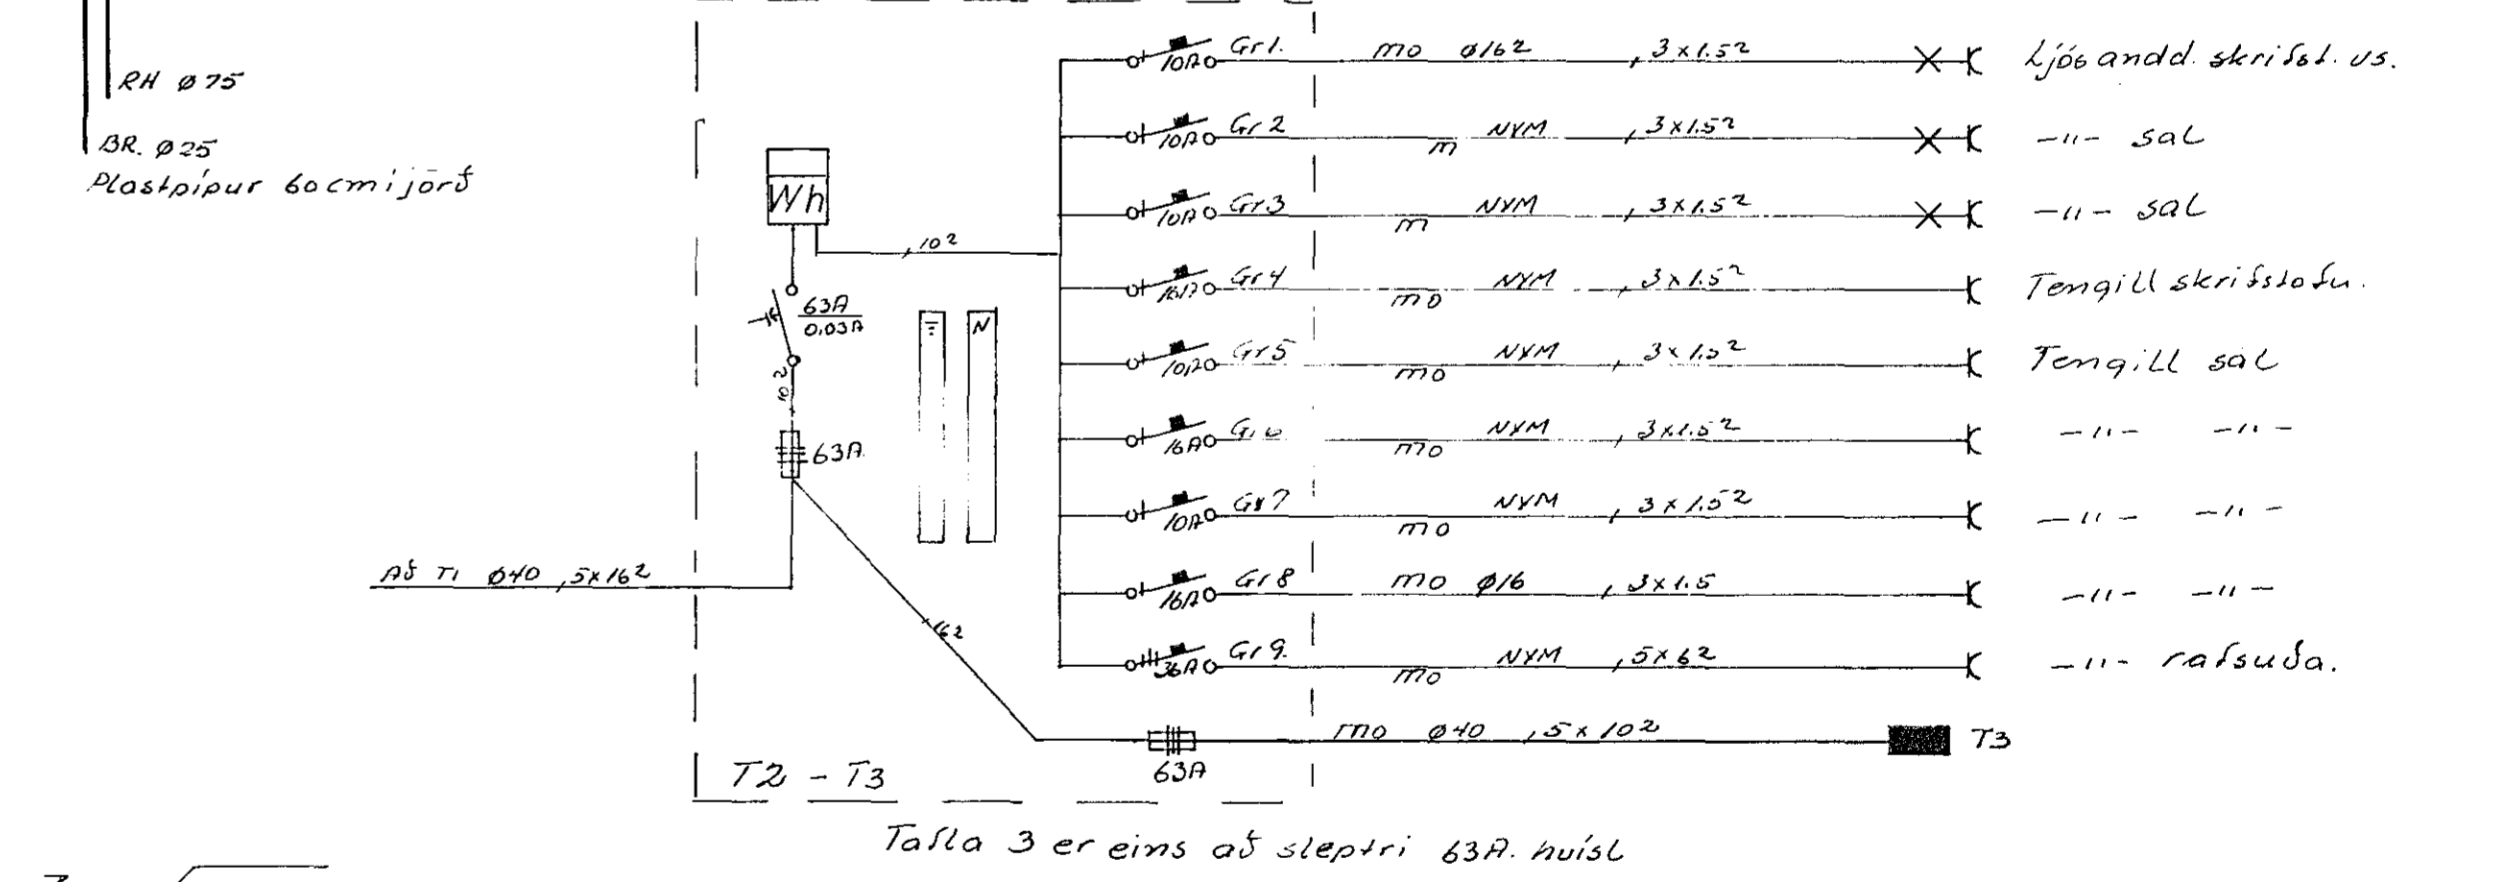 RH ø75
BR. ø25
Plastpípur 60cm í jörð
Wh
10²
63A
0,03A
10²
63A
N
Að T1 ø40 5x16²
16²
10A Gr1. mo ø16² 3x1.5² Ljós andd. skrifst. vs.
10A Gr2 m NYM 3x1.5² -"- sal
10A Gr3 m NYM 3x1.5² -"- sal
16A Gr4 mo NYM 3x1.5² Tengill skrifstofu.
10A Gr5 mo NYM 3x1.5² Tengill sal
16A Gr6 mo NYM 3x1.5² -"- -"-
10A Gr7 mo NYM 3x1.5² -"- -"-
16A Gr8 mo ø16 3x1.5 -"- -"-
36A Gr9. mo NYM 5x6² -"- rafsuða.
63A mo ø40 5x10² T3
T2 - T3
Tafla 3 er eins að sleptri 63A. kvísl